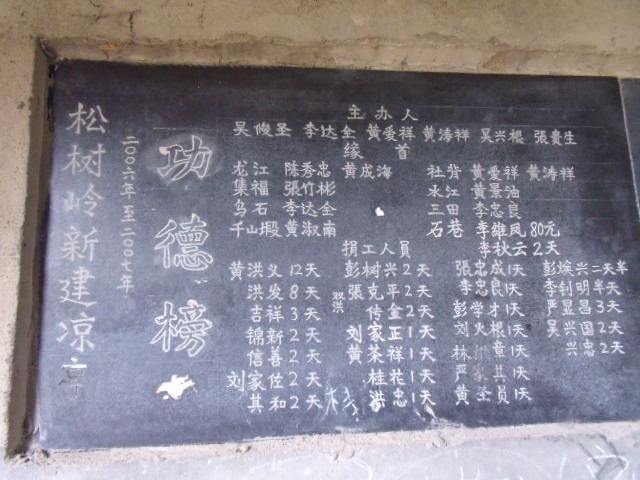 松树岭新建凉亭
二00六年至二00七年
功德榜
主办人
吴俊圣 李达全 黄爱祥 黄涛祥 吴兴根 張贵生
缘首
龙江 陈秀忠 黄成海 社背 黄爱祥 黄涛祥
集福 張竹彬 水江 黄景油
乌石 李达全 三田 李忠良
千山塅 黄淑南 石巷 李雄凤80元
李秋云2天
捐工人員
黄洪义12天 彭树兴2天 張忠成1天 彭焕兴二天半
洪发8天 張克平2天 李忠良1天 李钊明半天
吉祥3天 翠洪传金2天 彭学才1天 严显昌3天
锦新2天 刘家正1天 刘火根1天 吴兴国2天
信善2天 黄茶祥1天 林章1天 兴忠2天
刘家佐2天 桂花1天 严其1天
其和2天 洪忠1天 黄圣員1天